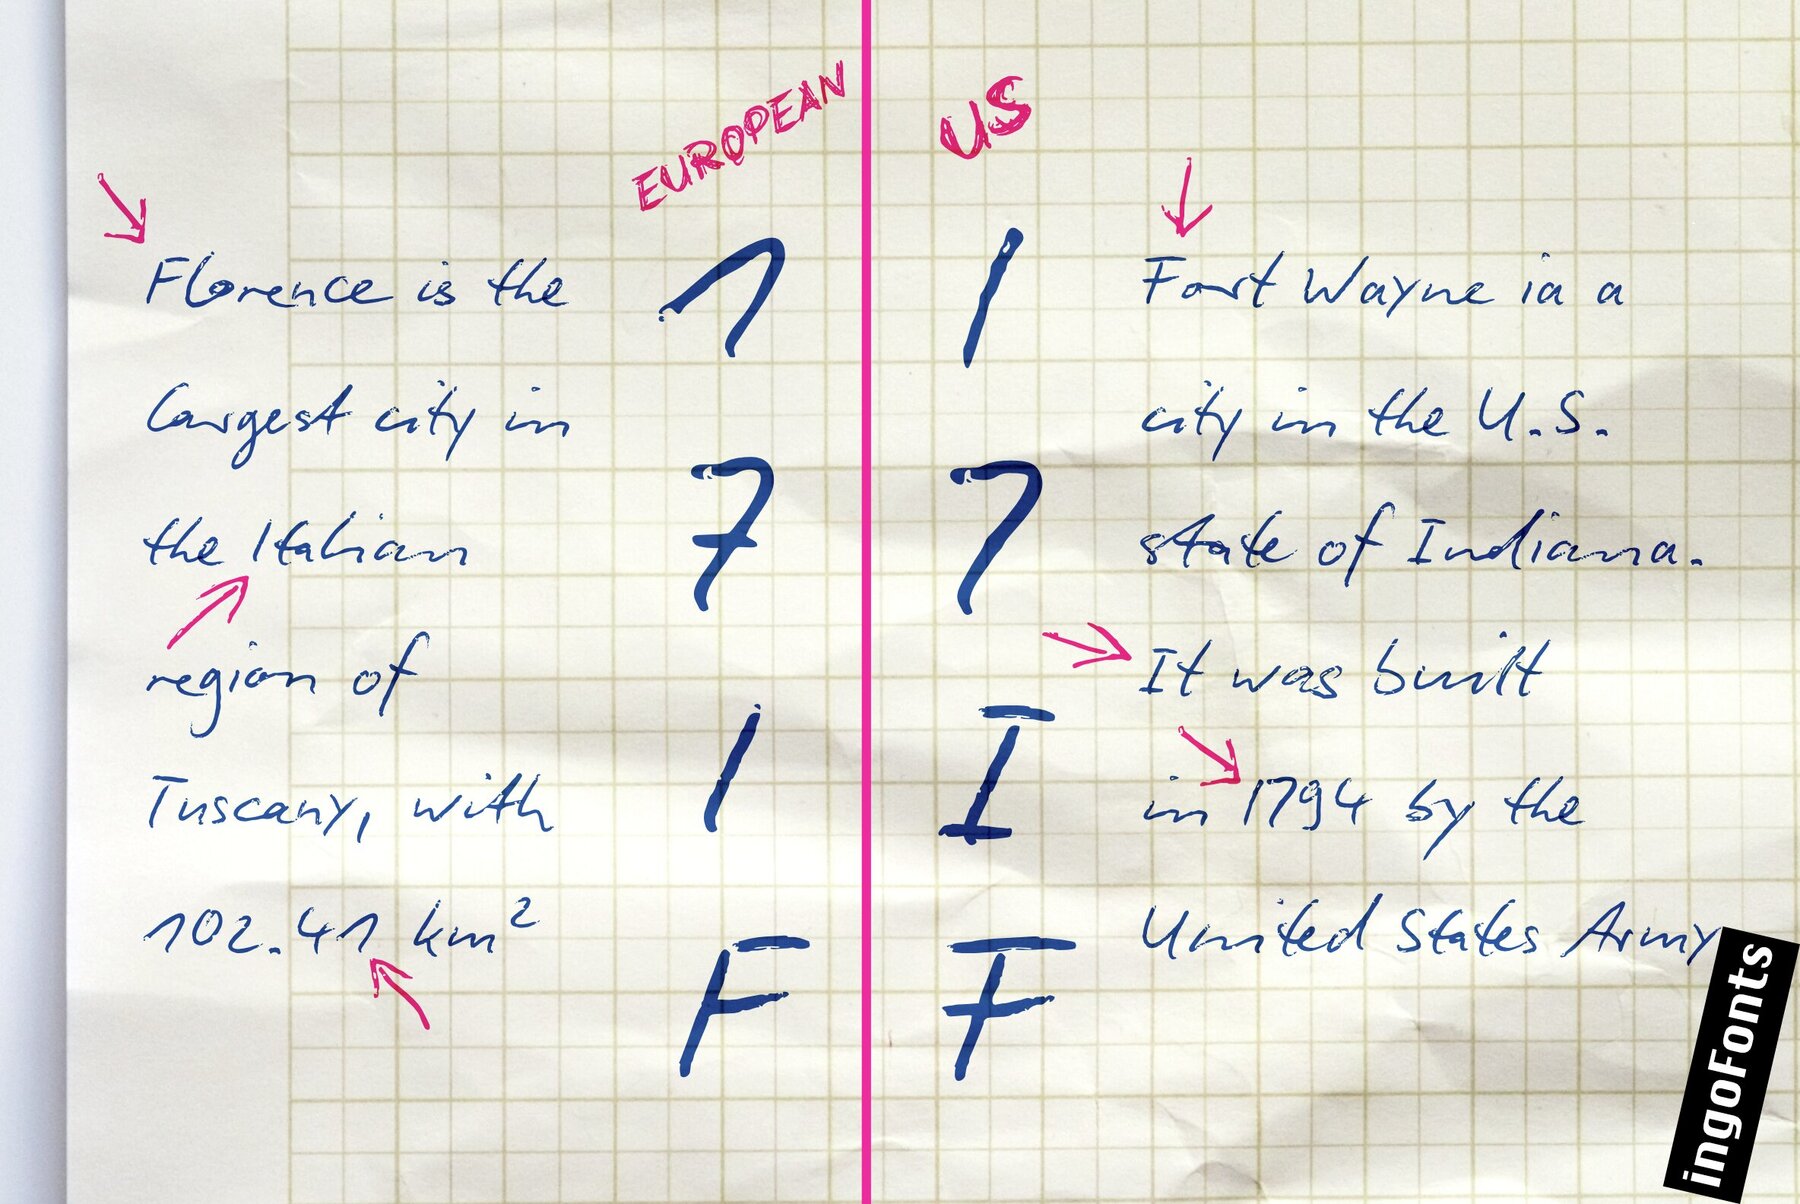 EUROPEAN
Florence is the
largest city in
the Italian
region of
Tuscany, with
102.41 km²
1
7
I
F
US
1
7
I
F
Fort Wayne ia a
city in the U.S.
state of Indiana.
It was built
in 1794 by the
United States Army
ingoFonts